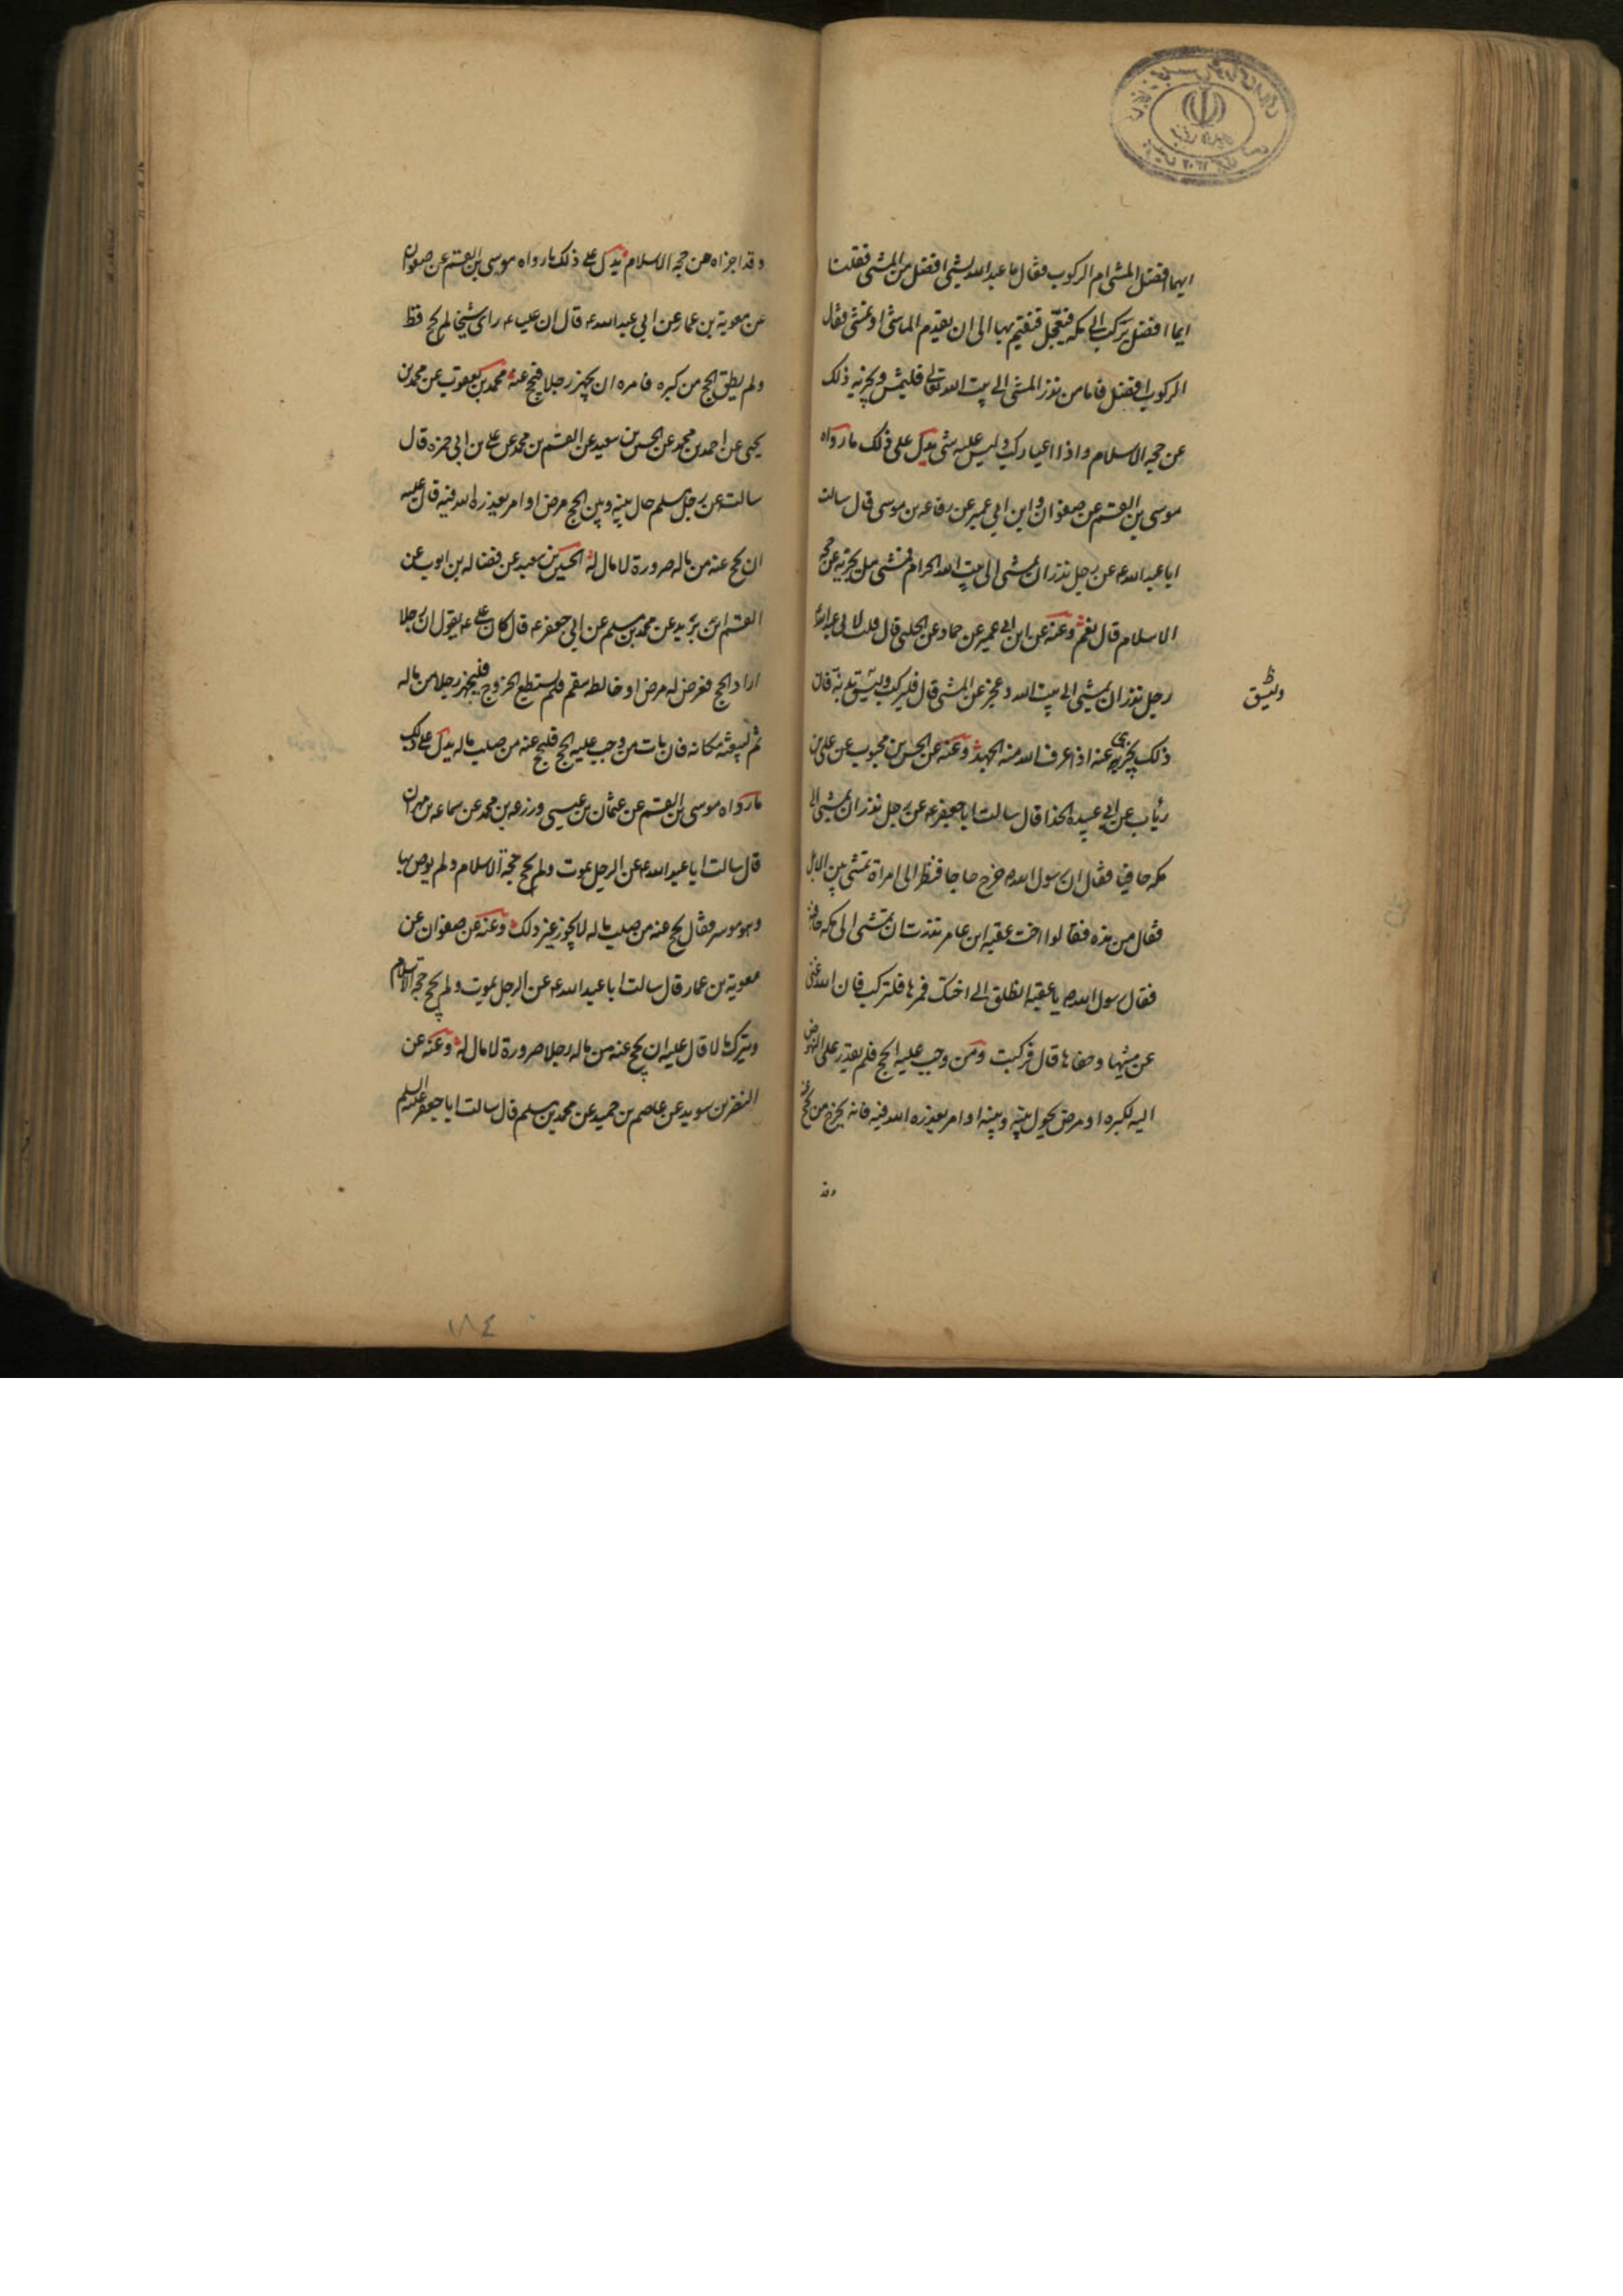 ايهما افضل المشى ام الركوب فقال ما عبد الله بشئ افضل من المشى فقلنا
ايما افضل يركب الى مكه فيعجل فيقيم بها الى ان يقدم الماشى او يمشى فقال
الركوب افضل فاما من نذر المشى الى بيت الله تعالى فليمش ويجزيه ذلك
عن حجه الاسلام واذا اعيا ركب وليس عليه شى يدل على ذلك ما رواه
موسى بن القسم عن صفوان وابن ابى عمير عن رفاعه بن موسى قال سالت
ابا عبد الله ع عن رجل نذر ان يمشى الى بيت الله الحرام فمشى هل يجزيه عن حجه
الاسلام قال نعم وعنه عن ابن ابى عمير عن حماد عن الحلبى قال قلت لابى عبد الله
رجل نذر ان يمشى الى بيت الله وعجز عن المشى قال فليركب وليسق بدنه فان
وليسق
ذلك يجزى عنه اذا عرف الله منه الجهد وعنه عن الحسن بن محبوب عن على بن
رئاب عن ابى عبيده الحذا قال سالت ابا جعفر ع عن رجل نذر ان يمشى الى
مكه حافيا فقال ان رسول الله ص خرج حاجا فنظر الى امراة تمشى بين الابل
فقال من هذه فقالوا اخت عقبه ابن عامر نذرت ان تمشى الى مكه حافيه
فقال رسول الله ص يا عقبه انطلق الى اختك فمرها فلتركب فان الله غنى
عن مشيها وحفاها قال فركبت ومن وجب عليه الحج فلم يقدر على النهوض
اليه لكبره او مرض يحول بينه وبينه او امر يعذره الله فيه فانه يخرج من يحج عنه
وقد
وقد اجزاه عن حجه الاسلام يدل على ذلك ما رواه موسى بن القسم عن صفوان
عن معوية بن عمار عن ابى عبد الله ع قال ان عليا ع راى شيخا لم يحج قط
ولم يطق الحج من كبره فامره ان يجهز رجلا فيحج عنه محمد بن يعقوب عن محمد بن
يحيى عن احمد بن محمد عن الحسين بن سعيد عن القسم بن محمد عن على بن ابى حمزه قال
سالته عن رجل مسلم حال بينه وبين الحج مرض او امر يعذره الله فيه قال عليه
ان يحج عنه من ماله صرورة لا مال له الحسين بن سعيد عن فضاله بن ايوب عن
القسم ابن بريد عن محمد بن مسلم عن ابى جعفر ع قال كان على ع يقول ان رجلا
اراد الحج فعرض له مرض او خالطه سقم فلم يستطع الخروج فليجهز رجلا من ماله
ثم ليبعثه مكانه فان مات من وجب عليه الحج فليحج عنه من صلب ماله يدل على ذلك
ما رواه موسى بن القسم عن عثمان بن عيسى وزرعه بن محمد عن سماعه بن مهران
قال سالت ابا عبد الله ع عن الرجل يموت ولم يحج حجة الاسلام ولم يوص بها
وهو موسر فقال يحج عنه من صلب ماله لا يجوز غير ذلك وعنه عن صفوان عن
معوية بن عمار قال سالت ابا عبد الله ع عن الرجل يموت ولم يحج حجه الاسلام
ويترك مالا قال عليه ان يحج عنه من ماله رجلا صرورة لا مال له وعنه عن
النضر بن سويد عن عاصم بن حميد عن محمد بن مسلم قال سالت ابا جعفر عليه السلم
١٨٤